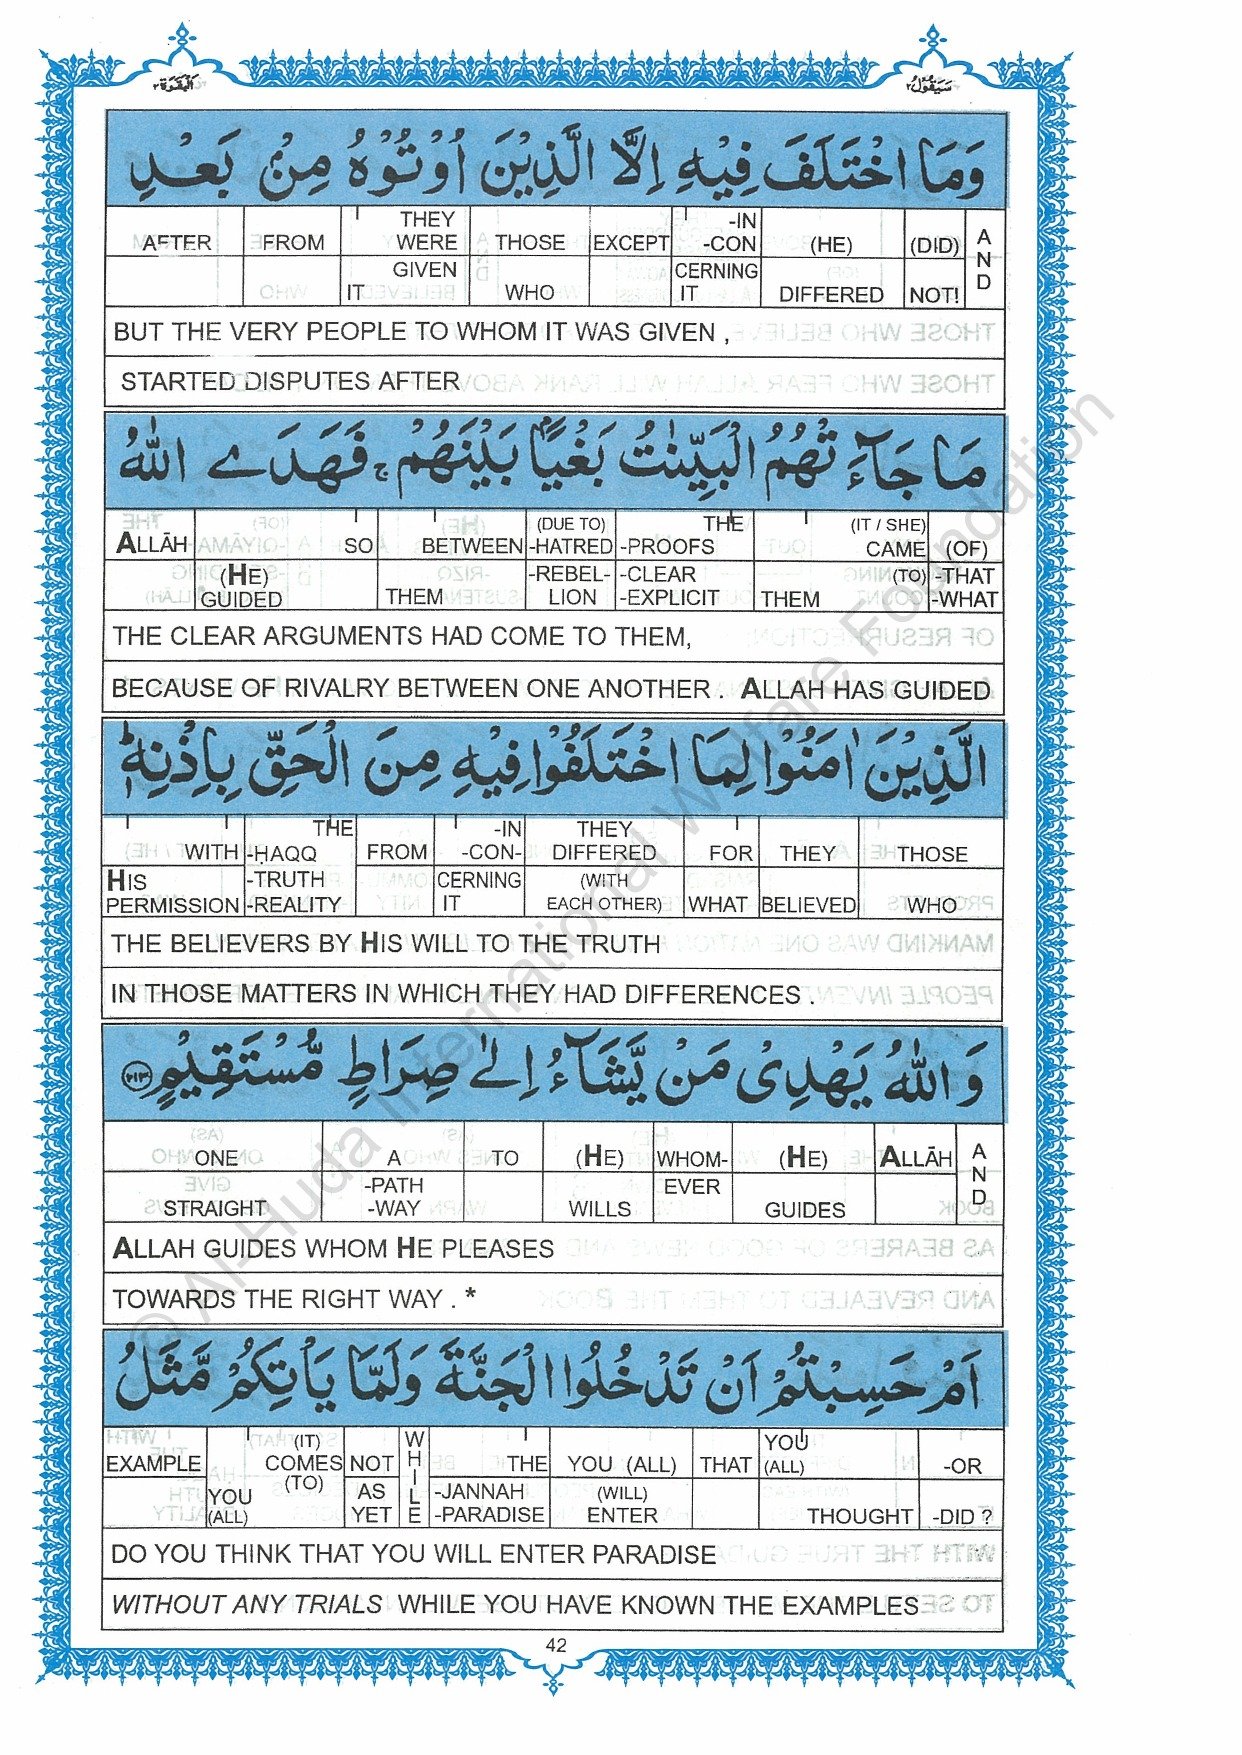 سَيَقُولُ ٢ اَلْبَقَرَة ٢
وَمَا اخْتَلَفَ فِيْهِ اِلَّا الَّذِيْنَ اُوْتُوْهُ مِنْۢ بَعْدِ
AFTER FROM THEY WERE THOSE EXCEPT -IN -CON (HE) (DID) AND
GIVEN IT WHO CERNING IT DIFFERED NOT!
BUT THE VERY PEOPLE TO WHOM IT WAS GIVEN ,
STARTED DISPUTES AFTER
مَا جَآءَتْهُمُ الْبَيِّنٰتُ بَغْيًاۢ بَيْنَهُمْ ۚ فَهَدَى اللّٰهُ
ALLĀH SO BETWEEN (DUE TO) -HATRED THE -PROOFS (IT / SHE) CAME (OF)
(HE) GUIDED THEM -REBEL- LION -CLEAR -EXPLICIT THEM (TO) -THAT -WHAT
THE CLEAR ARGUMENTS HAD COME TO THEM,
BECAUSE OF RIVALRY BETWEEN ONE ANOTHER . ALLAH HAS GUIDED
الَّذِيْنَ اٰمَنُوْا لِمَا اخْتَلَفُوْا فِيْهِ مِنَ الْحَقِّ بِاِذْنِهٖ ؕ
WITH THE -HAQQ FROM -IN -CON- THEY DIFFERED FOR THEY THOSE
HIS PERMISSION -TRUTH -REALITY CERNING IT (WITH EACH OTHER) WHAT BELIEVED WHO
THE BELIEVERS BY HIS WILL TO THE TRUTH
IN THOSE MATTERS IN WHICH THEY HAD DIFFERENCES .
وَاللّٰهُ يَهْدِىْ مَنْ يَّشَآءُ اِلٰى صِرَاطٍ مُّسْتَقِيْمٍ ﴿٢١٣﴾
ONE A TO (HE) WHOM- (HE) ALLĀH AND
STRAIGHT -PATH -WAY WILLS EVER GUIDES
ALLAH GUIDES WHOM HE PLEASES
TOWARDS THE RIGHT WAY . *
اَمْ حَسِبْتُمْ اَنْ تَدْخُلُوا الْجَنَّةَ وَلَمَّا يَاْتِكُمْ مَّثَلُ
EXAMPLE (IT) COMES (TO) NOT WHILE THE YOU (ALL) THAT YOU (ALL) -OR
YOU (ALL) AS YET -JANNAH -PARADISE (WILL) ENTER THOUGHT -DID ?
DO YOU THINK THAT YOU WILL ENTER PARADISE
WITHOUT ANY TRIALS WHILE YOU HAVE KNOWN THE EXAMPLES
42
© Al-Huda International Welfare Foundation